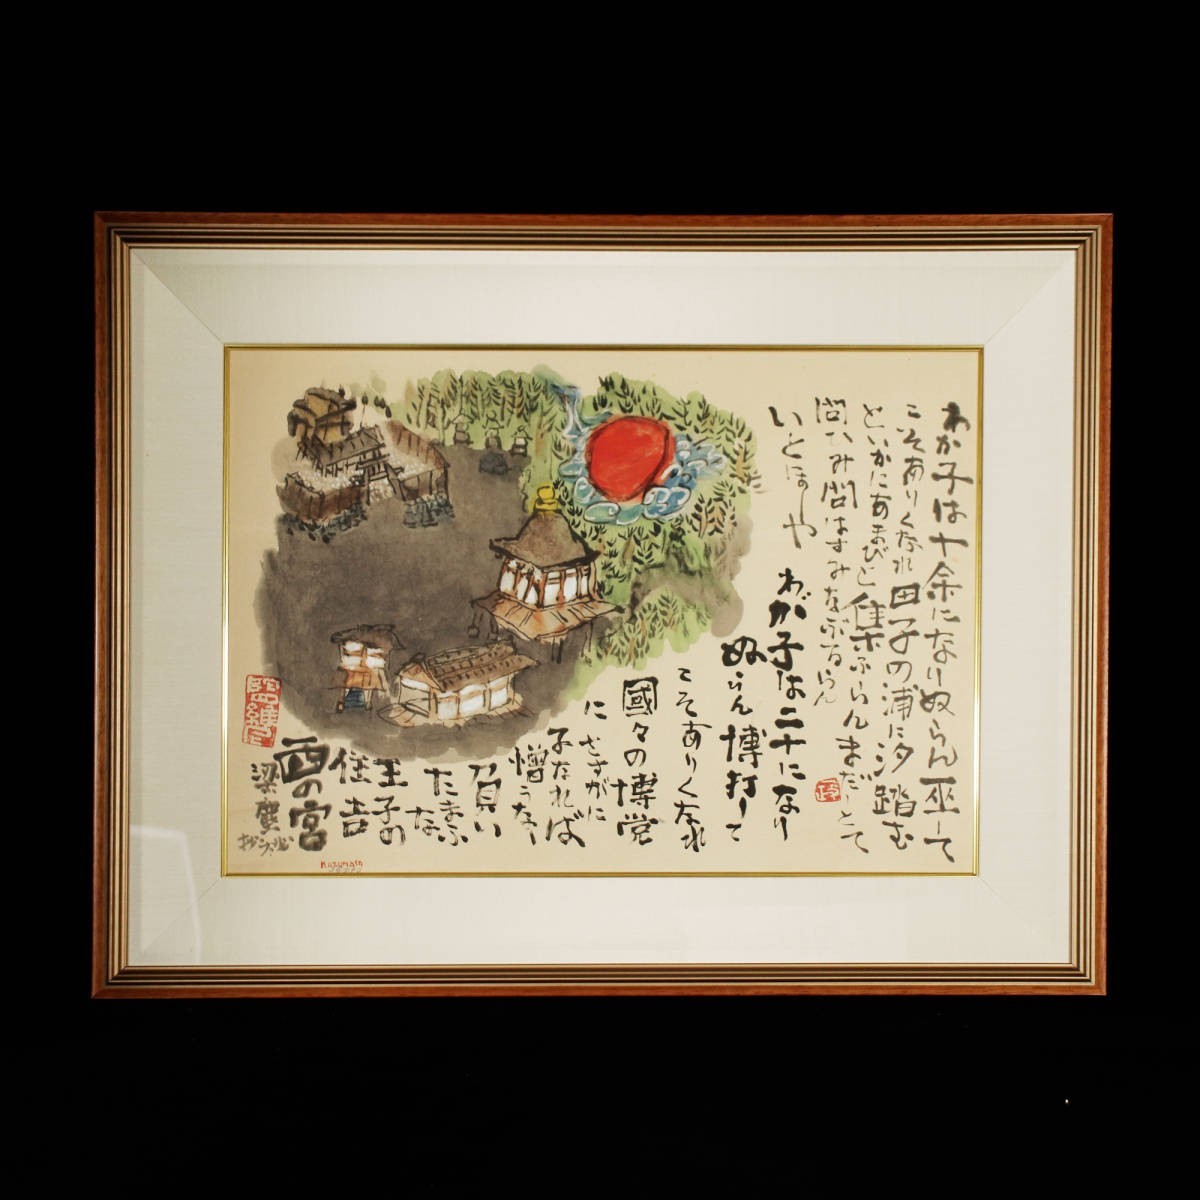 わか子は十余になりぬらん巫して
こそありくなれ田子の浦に汐踏む
といかにあまびと集ふらんまだしとて
問ひみ問はずみなぶるらん
いとほしや
わが子は二十になり
ぬらん博打して
こそありくなれ
國々の博党
にさすがに
子なれば
憎うなし
負い
たまふ
な
王子の
住吉
西の宮
梁塵
Kazumasa